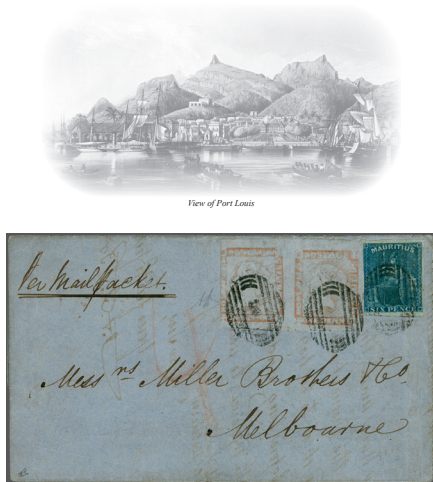 View of Port Louis
Per Mail Packet.
POSTAGE
MAURITIUS
SIX PENCE
Mess rs Miller Brothers & Co.
Melbourne